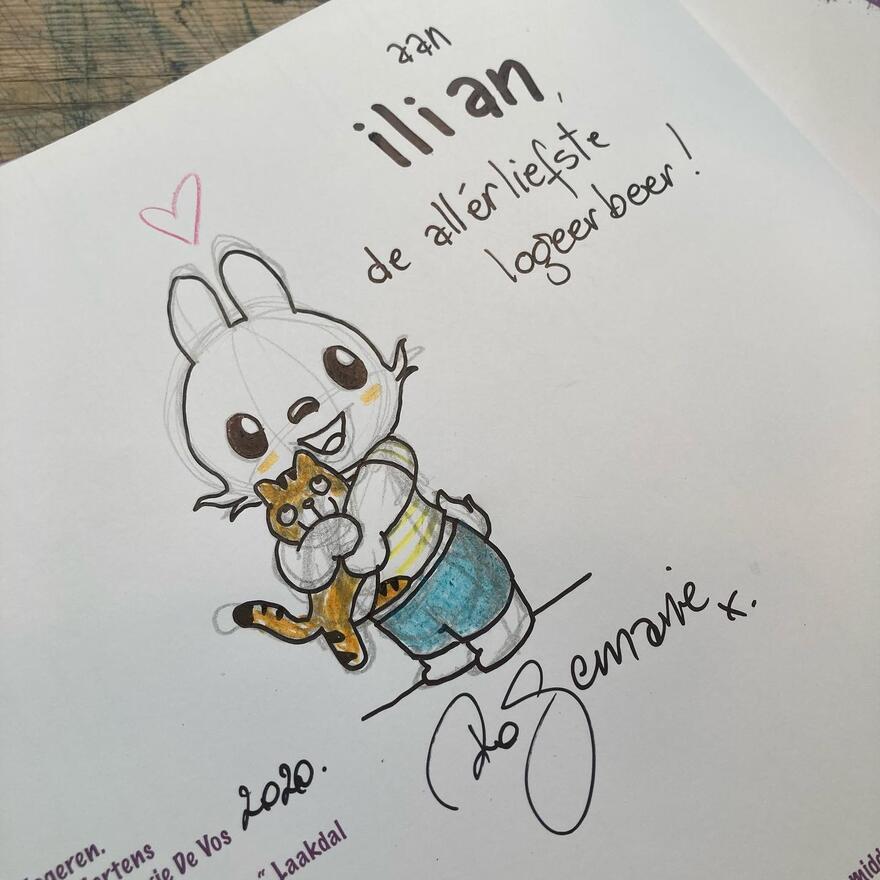 aan
ilian,
de allerliefste
logeerbeer!
RoSemarie x.
2020.
ogeren.
ie De Vos
" Laakdal